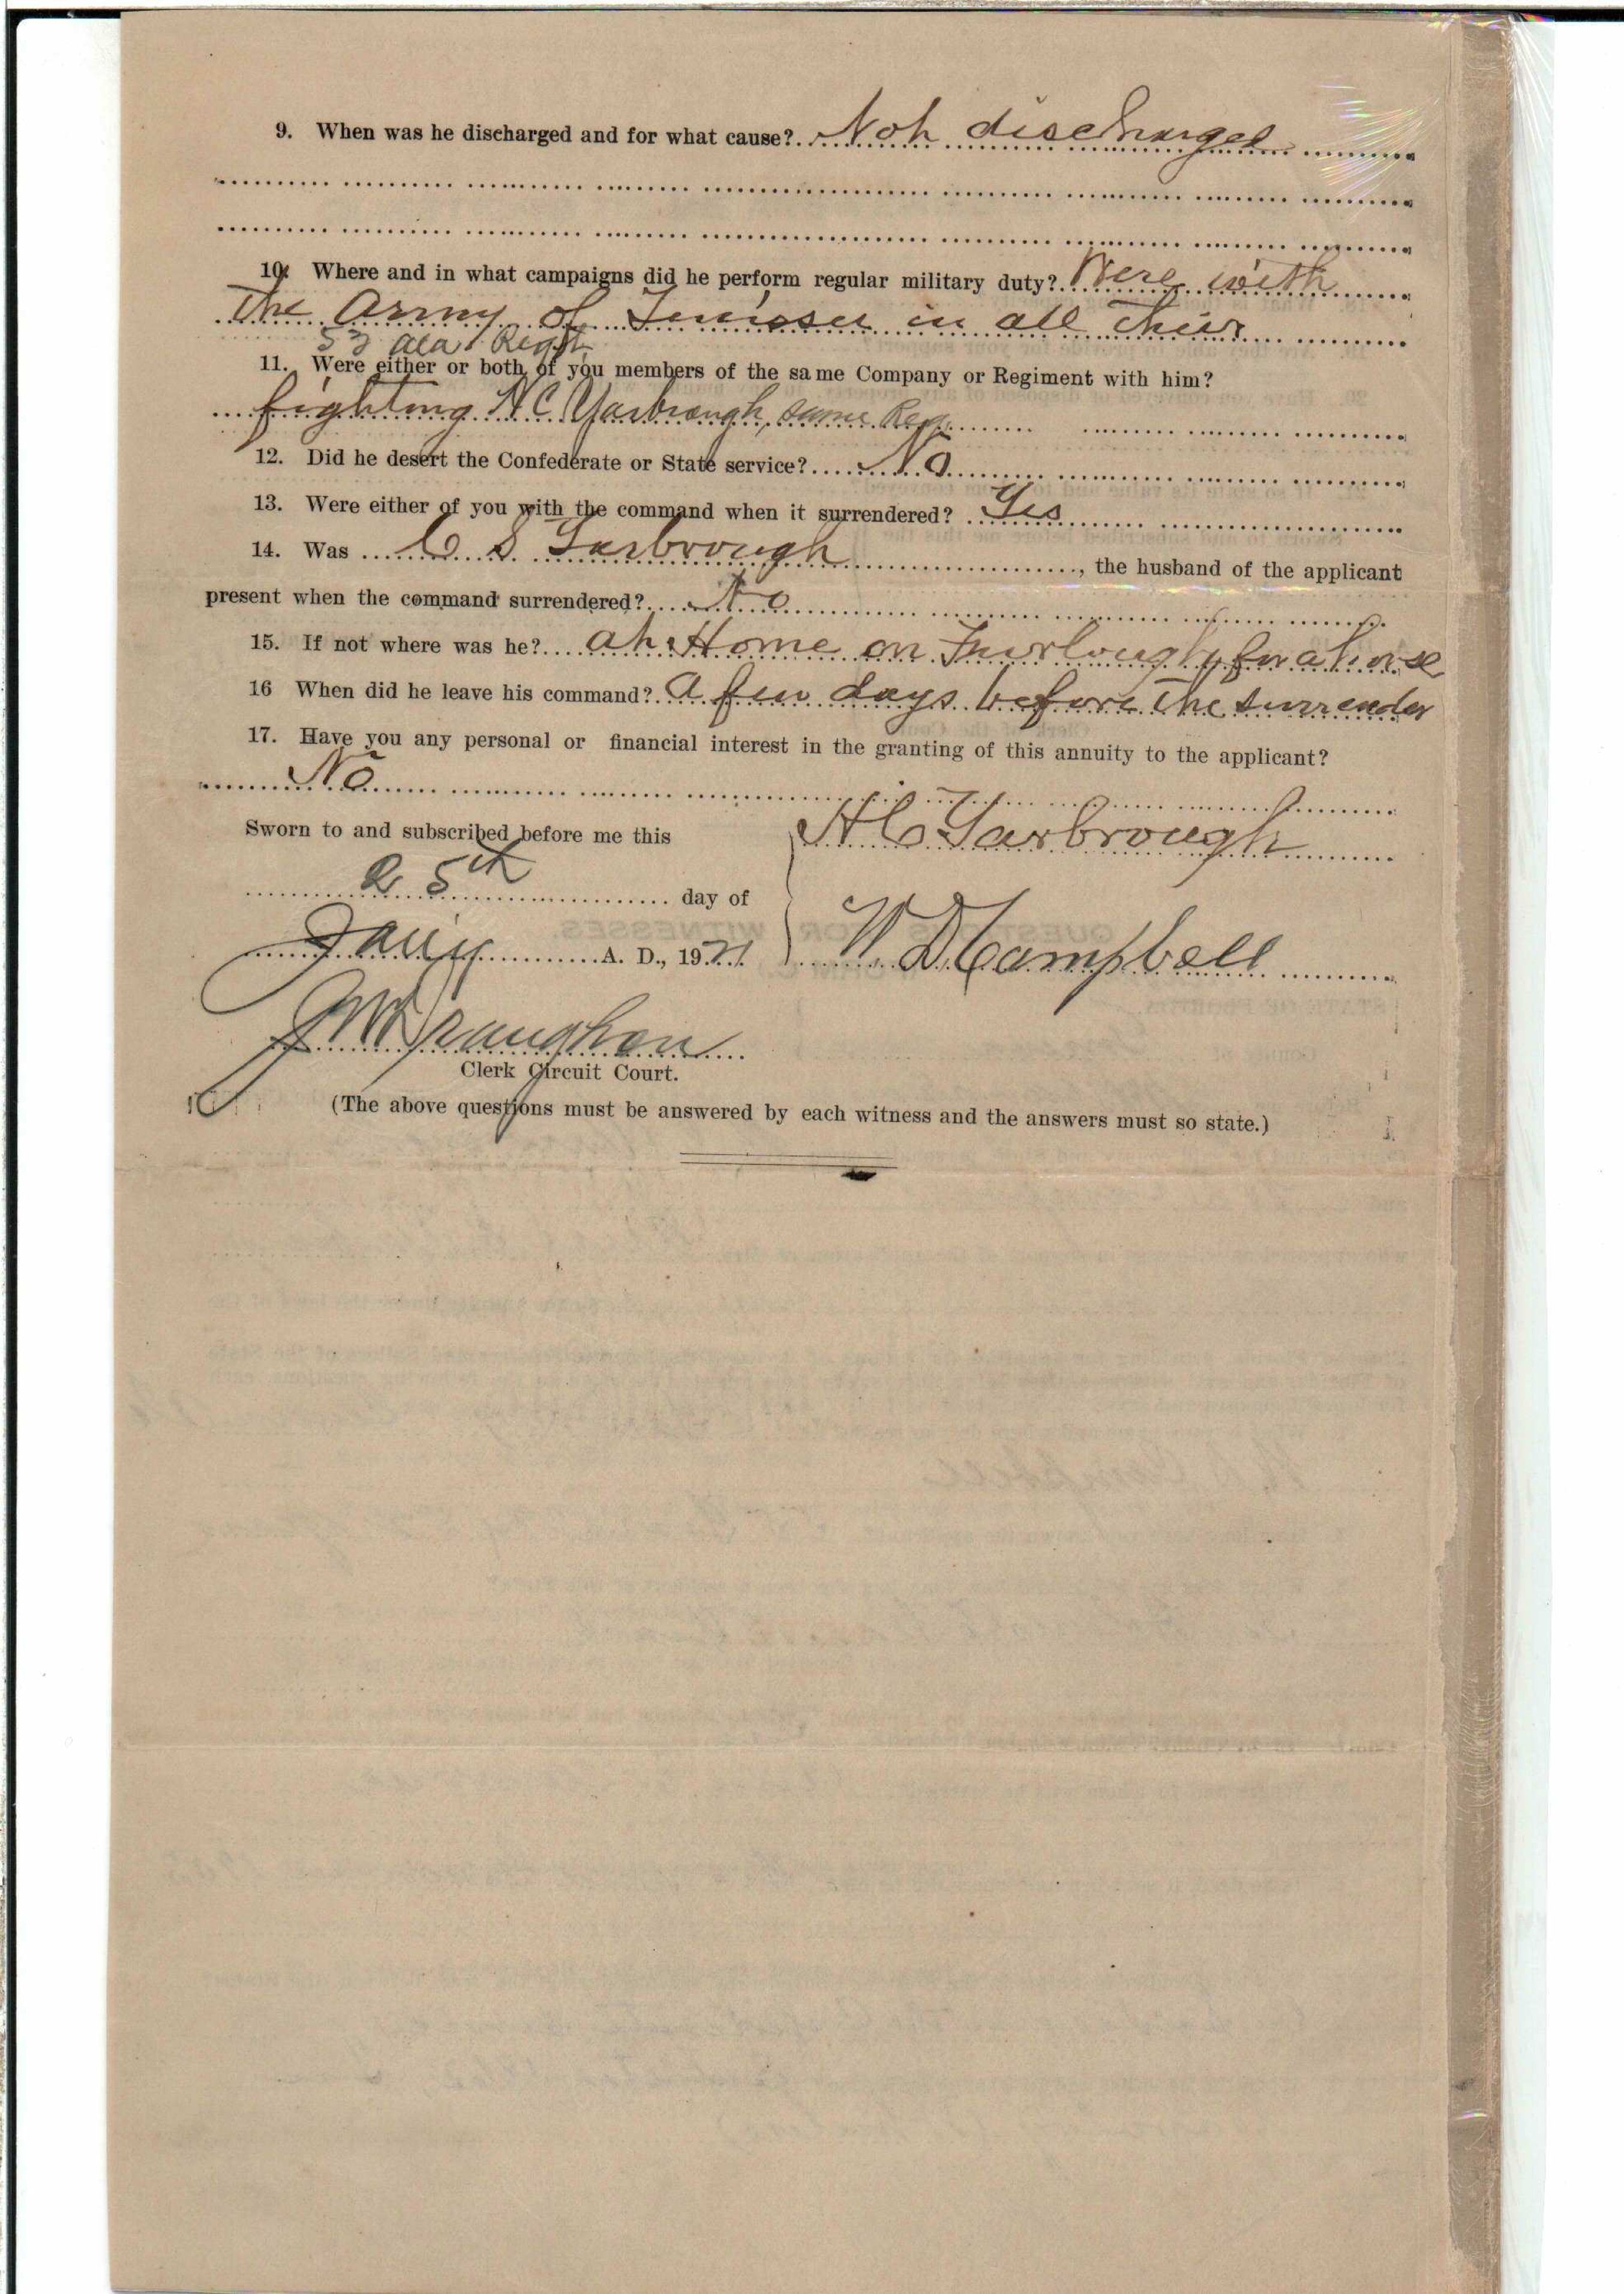 9. When was he discharged and for what cause? Not discharged
10. Where and in what campaigns did he perform regular military duty? Were with
the Army of Tenissee in all their
53 ala Regt
11. Were either or both of you members of the same Company or Regiment with him?
fighting H C Yarbrough, same Reg
12. Did he desert the Confederate or State service? No
13. Were either of you with the command when it surrendered? Yes
14. Was C S Yarbrough, the husband of the applicant
present when the command surrendered? No
15. If not where was he? at Home on Furlough for a horse
16 When did he leave his command? a few days before the surrender
17. Have you any personal or financial interest in the granting of this annuity to the applicant?
No
Sworn to and subscribed before me this
H C Yarbrough
25th day of
Jany A. D., 19
W D Campbell
Draughon
Clerk Circuit Court.
(The above questions must be answered by each witness and the answers must so state.)